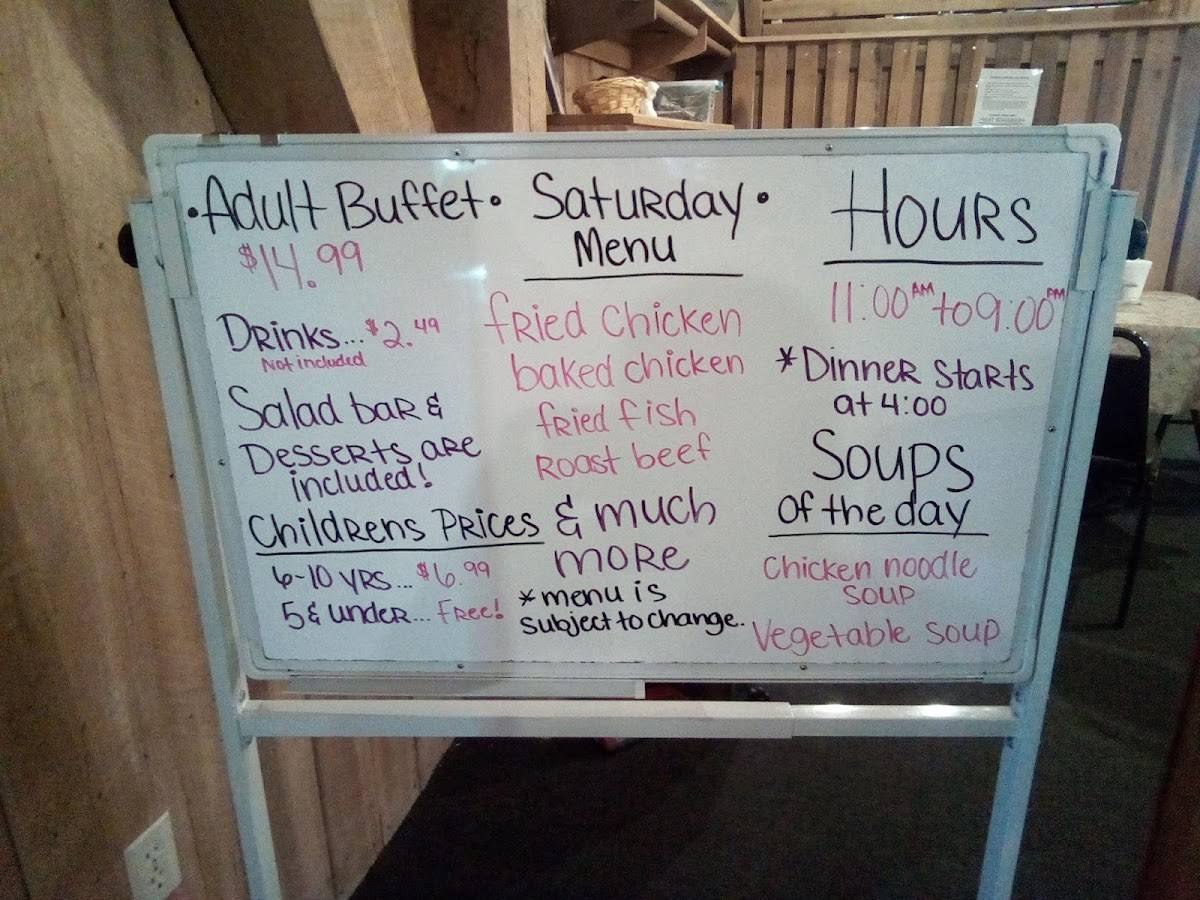 •Adult Buffet•
$14.99
Drinks...$2.49
Not included
Salad bar &
Desserts are
included!
Childrens Prices
6-10 yrs...$6.99
5& under...Free!
Saturday•
Menu
fried chicken
baked chicken
fried fish
Roast beef
& much
more
*menu is
subject to change.
Hours
11:00AM to 9:00PM
*Dinner starts
at 4:00
Soups
of the day
Chicken noodle
soup
Vegetable soup